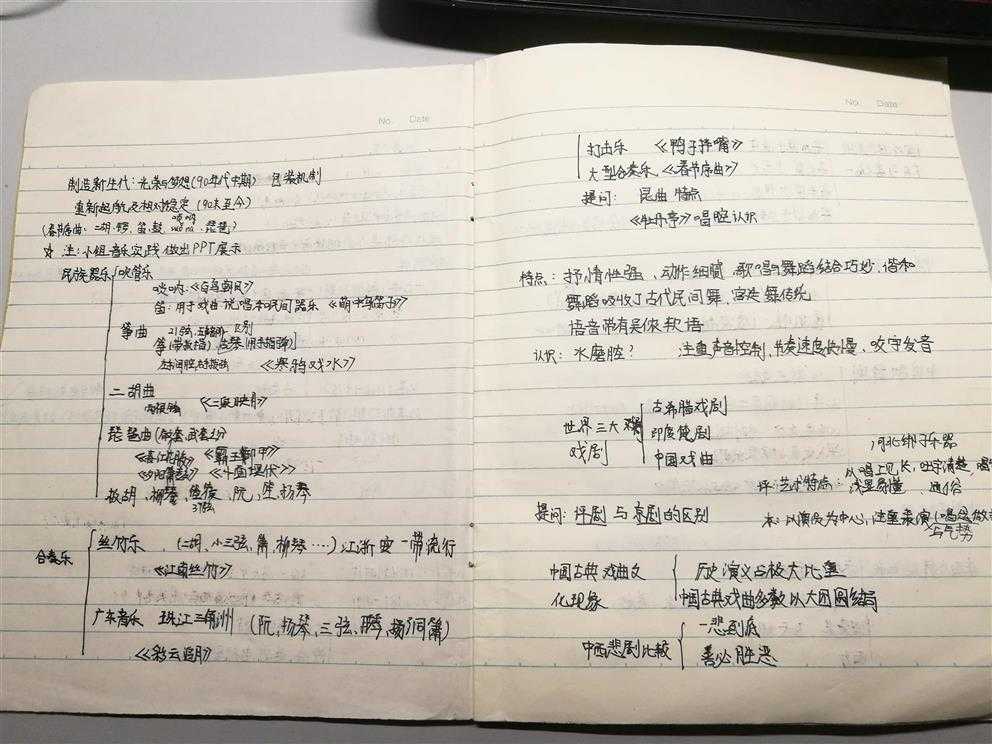 No. Date
制造新生代：光荣与梦想(90年代中期) 包装机制
重新起航及相对稳定 (90末至今)
(春节序曲：二胡、锣、笛、鼓、suo na 唢呐、琵琶)
☆ 注：小组音乐实践 做出PPT展示
民族器乐 吹管乐
唢呐：《百鸟朝凤》
笛：用于戏曲 说唱和民间器乐 《荫中鸟笛子》
筝曲 21弦, 区别
筝(带教指) 古琴
《寒鸦戏水》
二胡曲
两根弦 《二泉映月》
琵琶曲 (文套, 武套之分
《霸王卸甲》
《夕阳箫鼓》 《十面埋伏》
板胡、柳琴、阮、笙、扬琴
37弦
合奏乐 丝竹乐 (二胡、小三弦、箫、柳琴……) 江浙 一带流行
《江南丝竹》
广东音乐 珠江三角洲 (阮、扬琴、三弦、箫)
《彩云追月》
No. Date
打击乐 《鸭子拌嘴》
大型合奏乐 《春节序曲》
提问： 昆曲 特点
《牡丹亭》唱腔认识
特点：抒情性强、动作细腻、歌唱与舞蹈结合巧妙、谐和
舞蹈吸收了古代民间舞、宫廷舞传统
语音带有吴侬软语
认识：水磨腔？ 注重声音控制、节奏速度快慢、咬字发音
世界三大 古希腊戏剧
戏剧 印度梵剧
中国戏曲
河北绑子乐器
评：艺术特点： 以唱工见长，吐字清楚，唱
浅显易懂 通俗
提问：评剧 与 京剧的区别
京：以演员为中心，注重表演 (唱念做
与气势
中国古典戏曲文 历史演义占极大比重
化现象 中国古典戏曲多数以大团圆结局
中西悲剧比较 一悲到底
善必胜恶